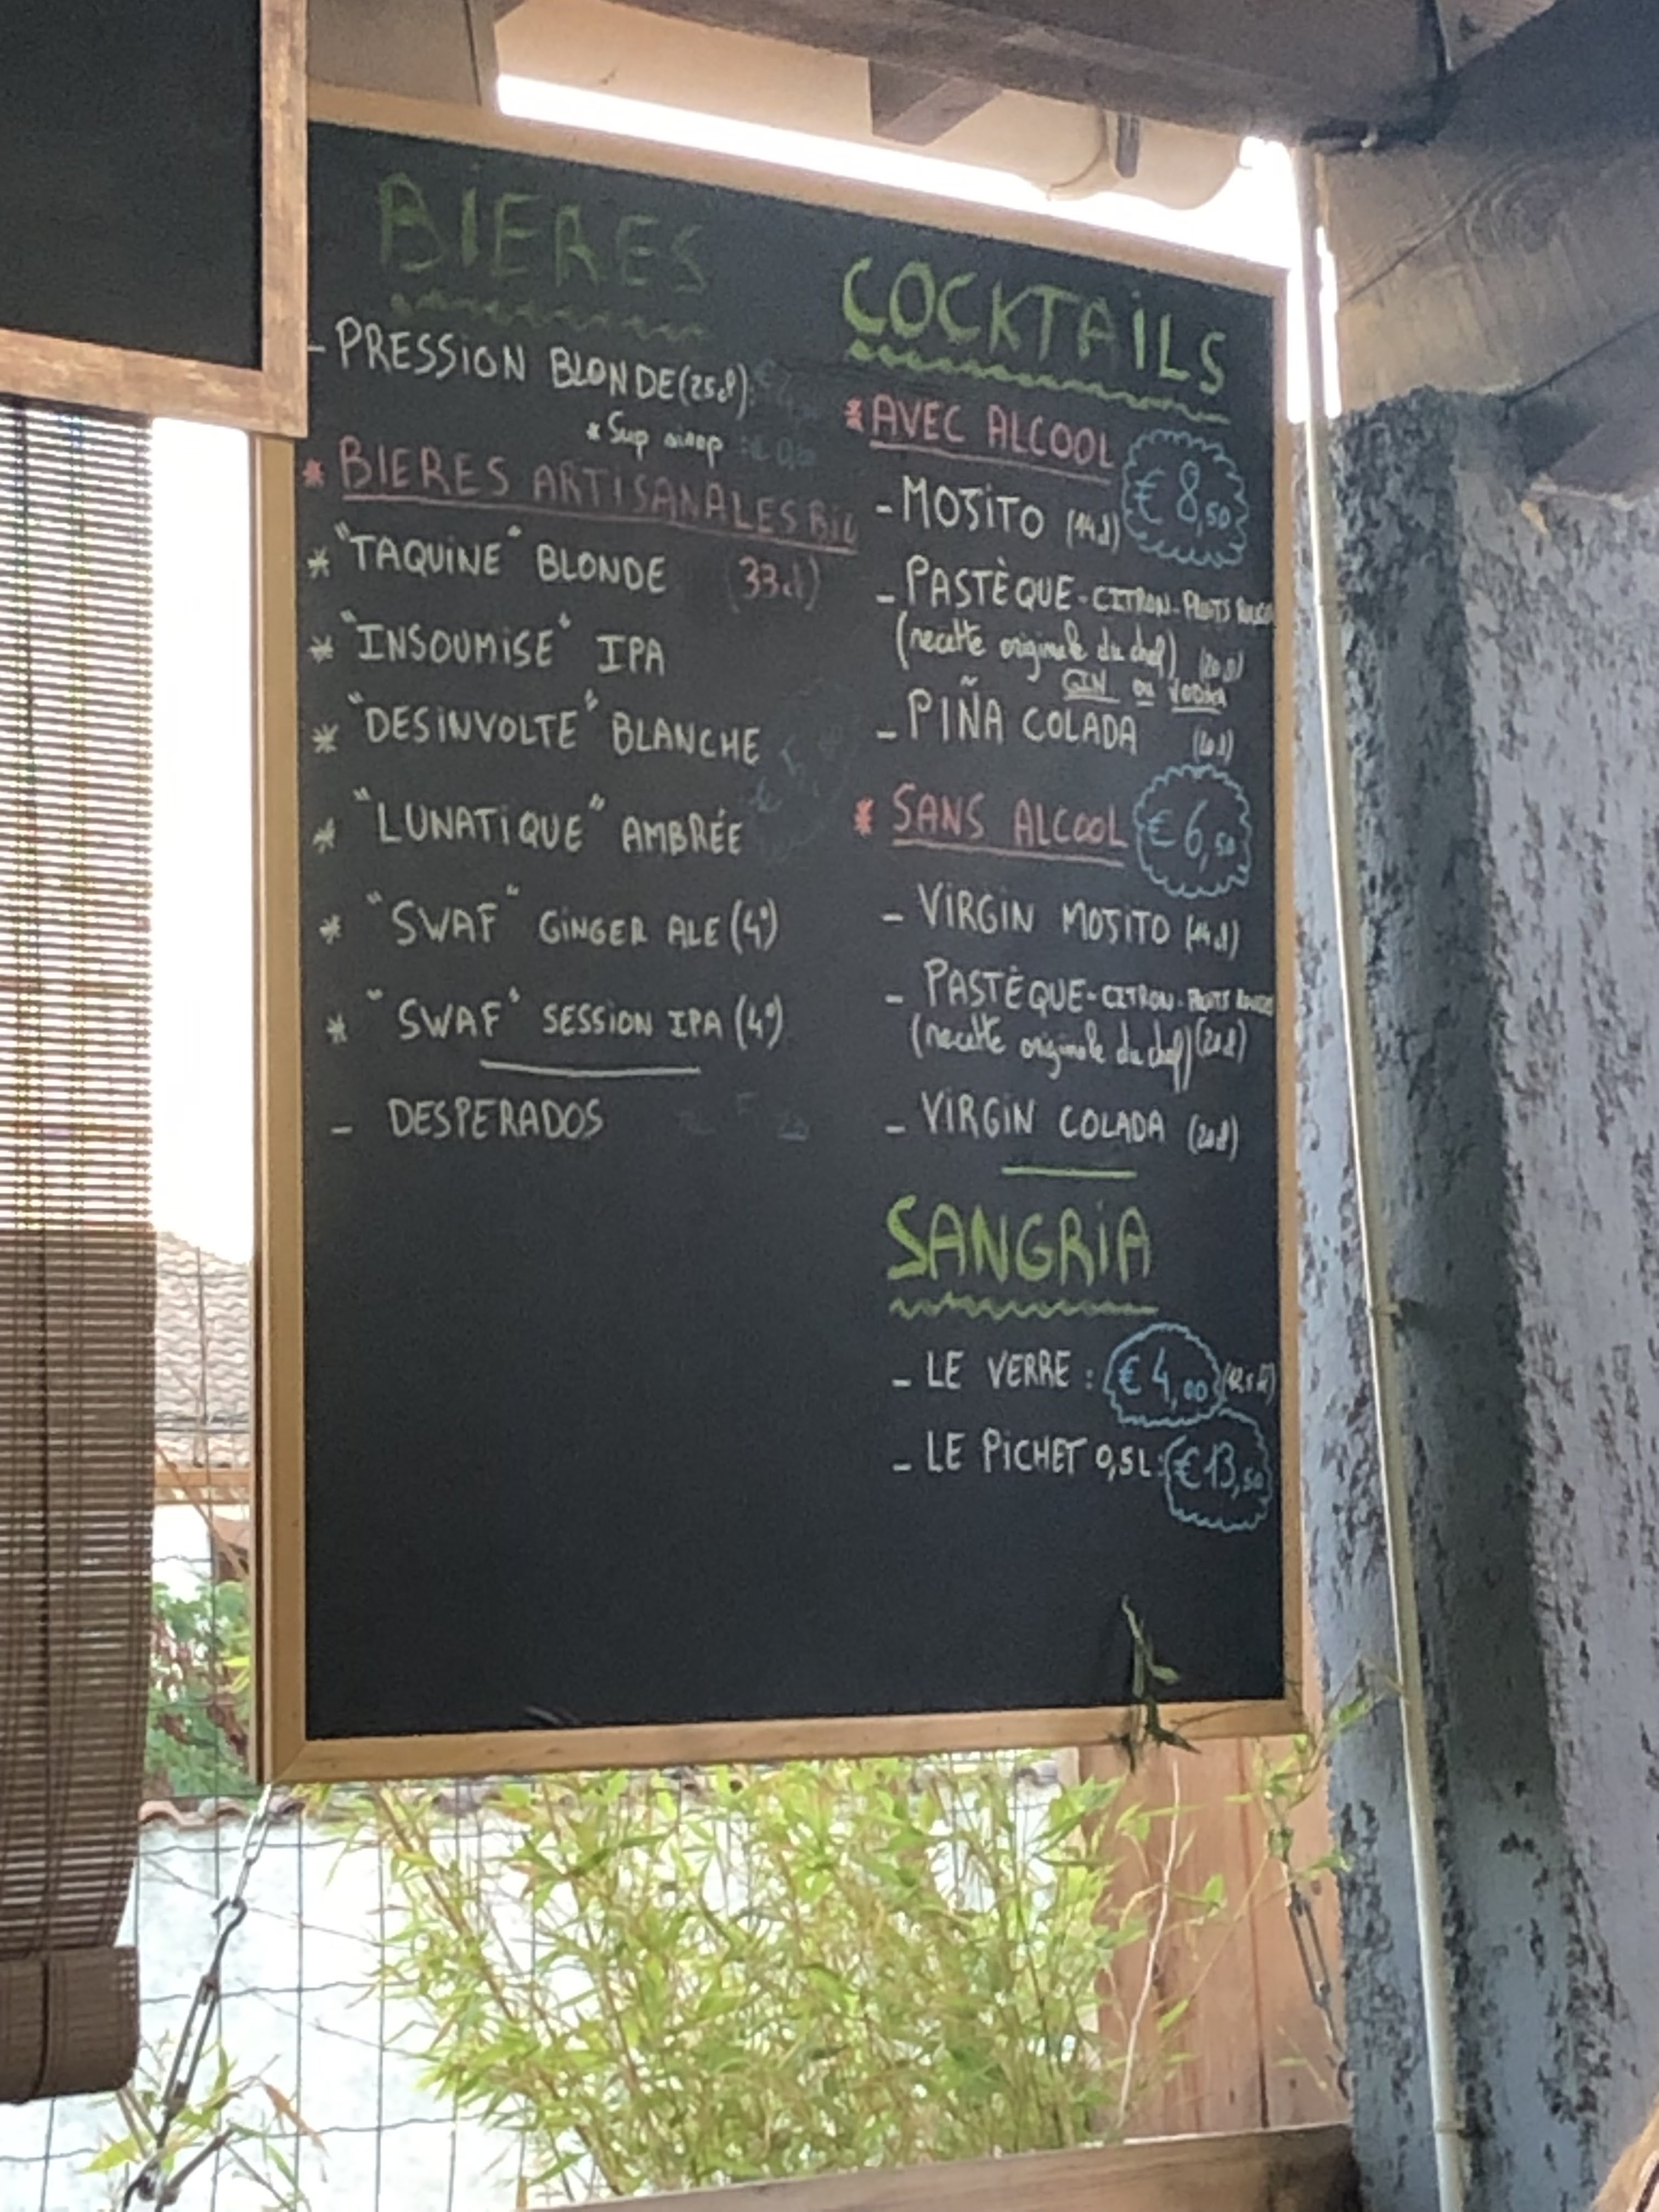 BIERES
- PRESSION BLONDE (25cl):
* Sup sirop :
* BIERES ARTISANALES BIO
(33cl)
* "TAQUINE" BLONDE
* "INSOUMISE" IPA
* "DESINVOLTE" BLANCHE
* "LUNATIQUE" AMBRÉE
* "SWAF" GINGER ALE (4°)
* "SWAF" SESSION IPA (4°)
- DESPERADOS
COCKTAILS
* AVEC ALCOOL € 8,50
- MOJITO (14cl)
- PASTÈQUE-CITRON-FRUITS ROUGES
(recette originale du chef) (20cl)
GIN ou VODKA
- PIÑA COLADA (20cl)
* SANS ALCOOL € 6,50
- VIRGIN MOJITO (14cl)
- PASTÈQUE-CITRON-FRUITS ROUGES
(recette originale du chef) (20cl)
- VIRGIN COLADA (20cl)
SANGRIA
- LE VERRE : € 4,00
- LE PICHET 0,5L : € 13,50